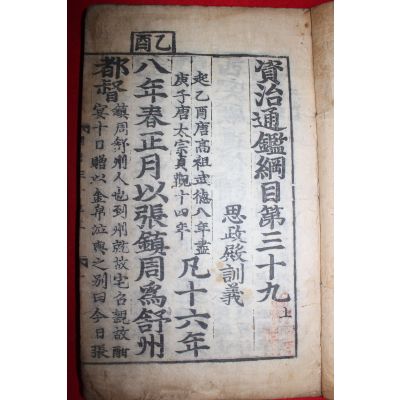 資治通鑑綱目第三十九上
思政殿訓義
起乙酉唐高祖武德八年盡
庚子唐太宗貞觀十四年
凡十六年
乙酉
八年春正月以張鎮周爲舒州
都督
鎮周舒州人也到州就故宅召親故酣
宴十日贈以金帛泣與之別曰今日張